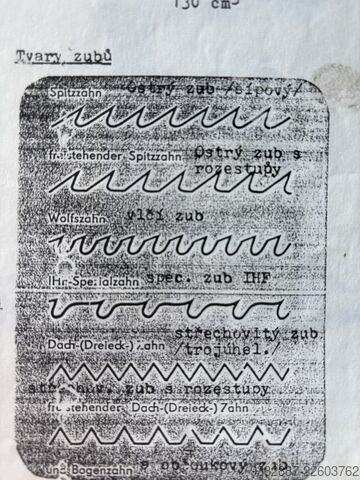 130 cm³
Tvary zubů
Spitzzahn Ostrý zub /šípový/
freistehender Spitzzahn Ostrý zub s
rozestupy
Wolfszahn vlčí zub
IHF-Spezialzahn spec. zub IHF
střechovitý zub
Dach-(Dreieck-) Zahn /trojúhel./
zub s rozestupy
freistehender Dach-(Dreieck-) Zahn
und Bogenzahn a obloukový zub
162387 22603762